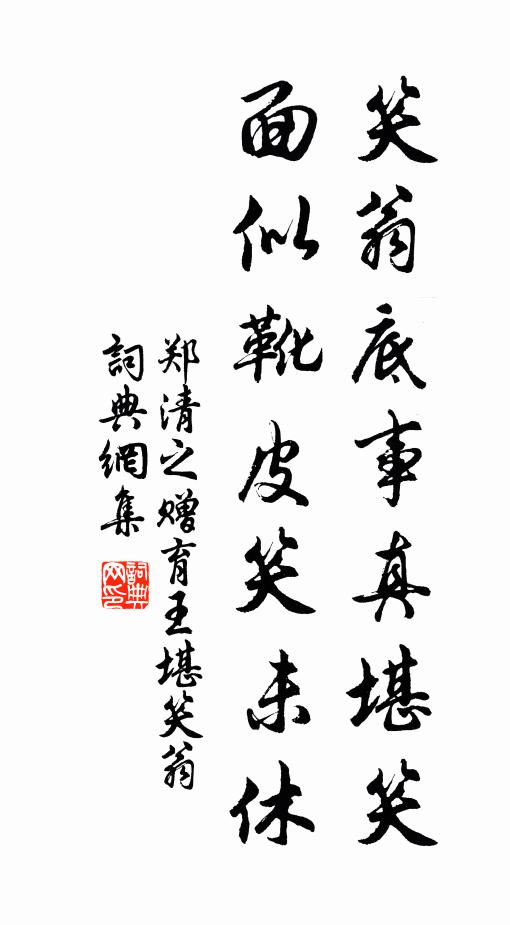 笑翁底事真堪笑
面似靴皮笑未休
郑清之赠育王堪笑翁
詞典網集
詞典网印